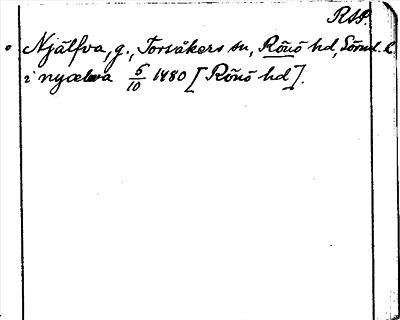 RAP.
Njälfva, g., Torsåkers sn, Rönö hd, Sörml. l.
i nyælwa 6/10 1480 [Rönö hd].